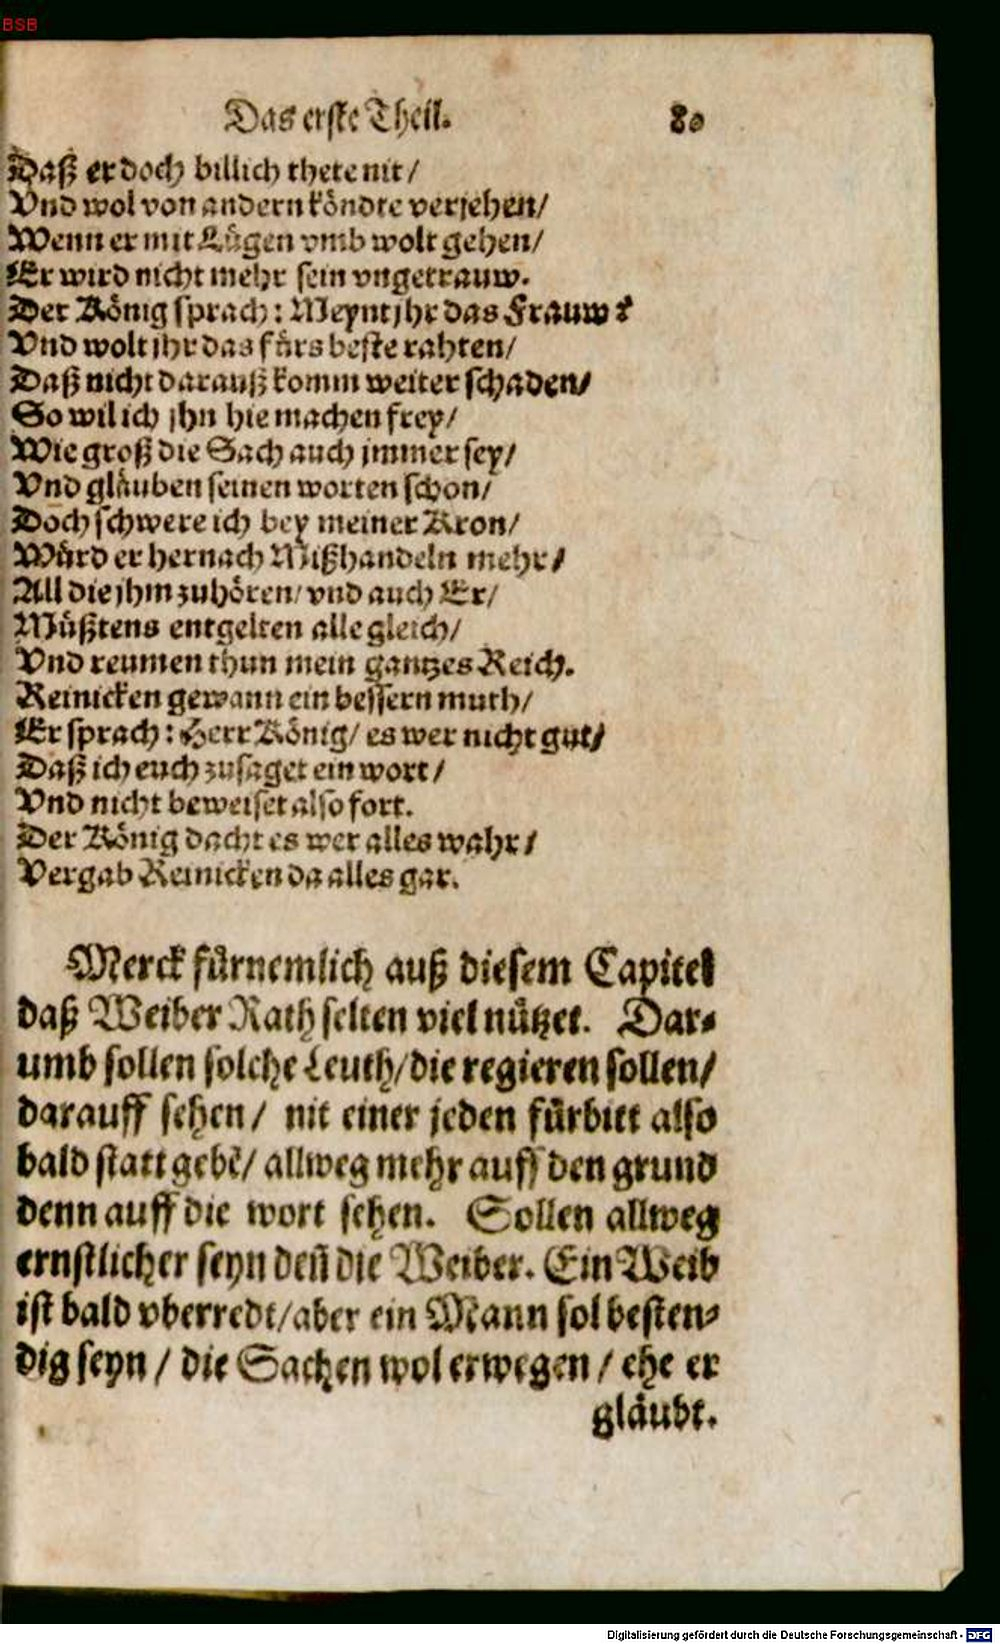 BSB
Das erste Theil. 80
Daß er doch billich thete nit/
Vnd wol von andern köndte verjehen/
Wenn er mit Lügen vmb wolt gehen/
Er wird nicht mehr sein vngetrauw.
Der König sprach: Meynt jhr das Frauw?
Vnd wolt jhr das fürs beste rahten/
Daß nicht darauß komm weiter schaden/
So wil ich jhn hie machen frey/
Wie groß die Sach auch jmmer sey/
Vnd gläuben seinen worten schon/
Doch schwere ich bey meiner Kron/
Würd er hernach Mißhandeln mehr/
All die jhm zuhören/ vnd auch Er/
Müßtens entgelten alle gleich/
Vnd reumen thun mein gantzes Reich.
Reinicken gewann ein bessern muth/
Er sprach: Herr König/ es wer nicht gut/
Daß ich euch zusaget ein wort/
Vnd nicht beweiset also fort.
Der König dacht es wer alles wahr/
Vergab Reinicken da alles gar.
Merck fürnemlich auß diesem Capitel
daß Weiber Rath selten viel nützet. Dar-
umb sollen solche Leuth/die regieren sollen/
darauff sehen/ nit einer jeden fürbitt also
bald statt gebẽ/ allweg mehr auff den grund
denn auff die wort sehen. Sollen allweg
ernstlicher seyn deñ die Weiber. Ein Weib
ist bald vberredt/aber ein Mann sol besten-
dig seyn / die Sachen wol erwegen / ehe er
gläubt.
Digitalisierung gefördert durch die Deutsche Forschungsgemeinschaft - DFG